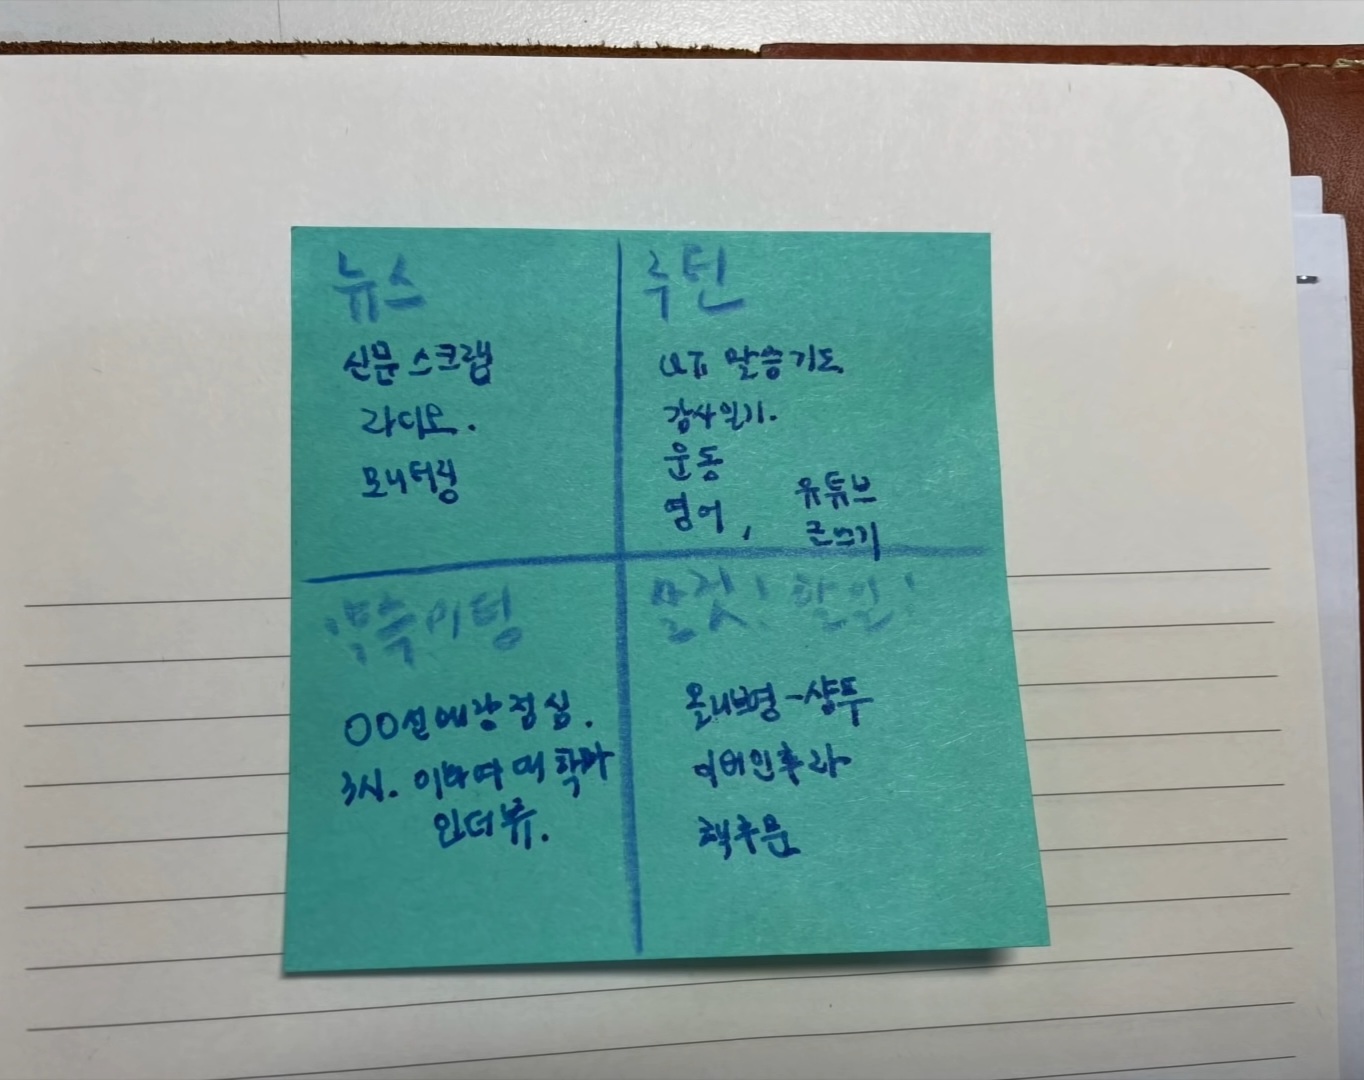 뉴스
신문 스크랩
라디오.
모니터링
루틴
QT 말씀 기도
감사일기.
운동
영어, 유튜브
글쓰기
약속 미팅
OO선배랑 점심.
3시.
인터뷰.
살것! 할일!
올리브영-샴푸
책주문